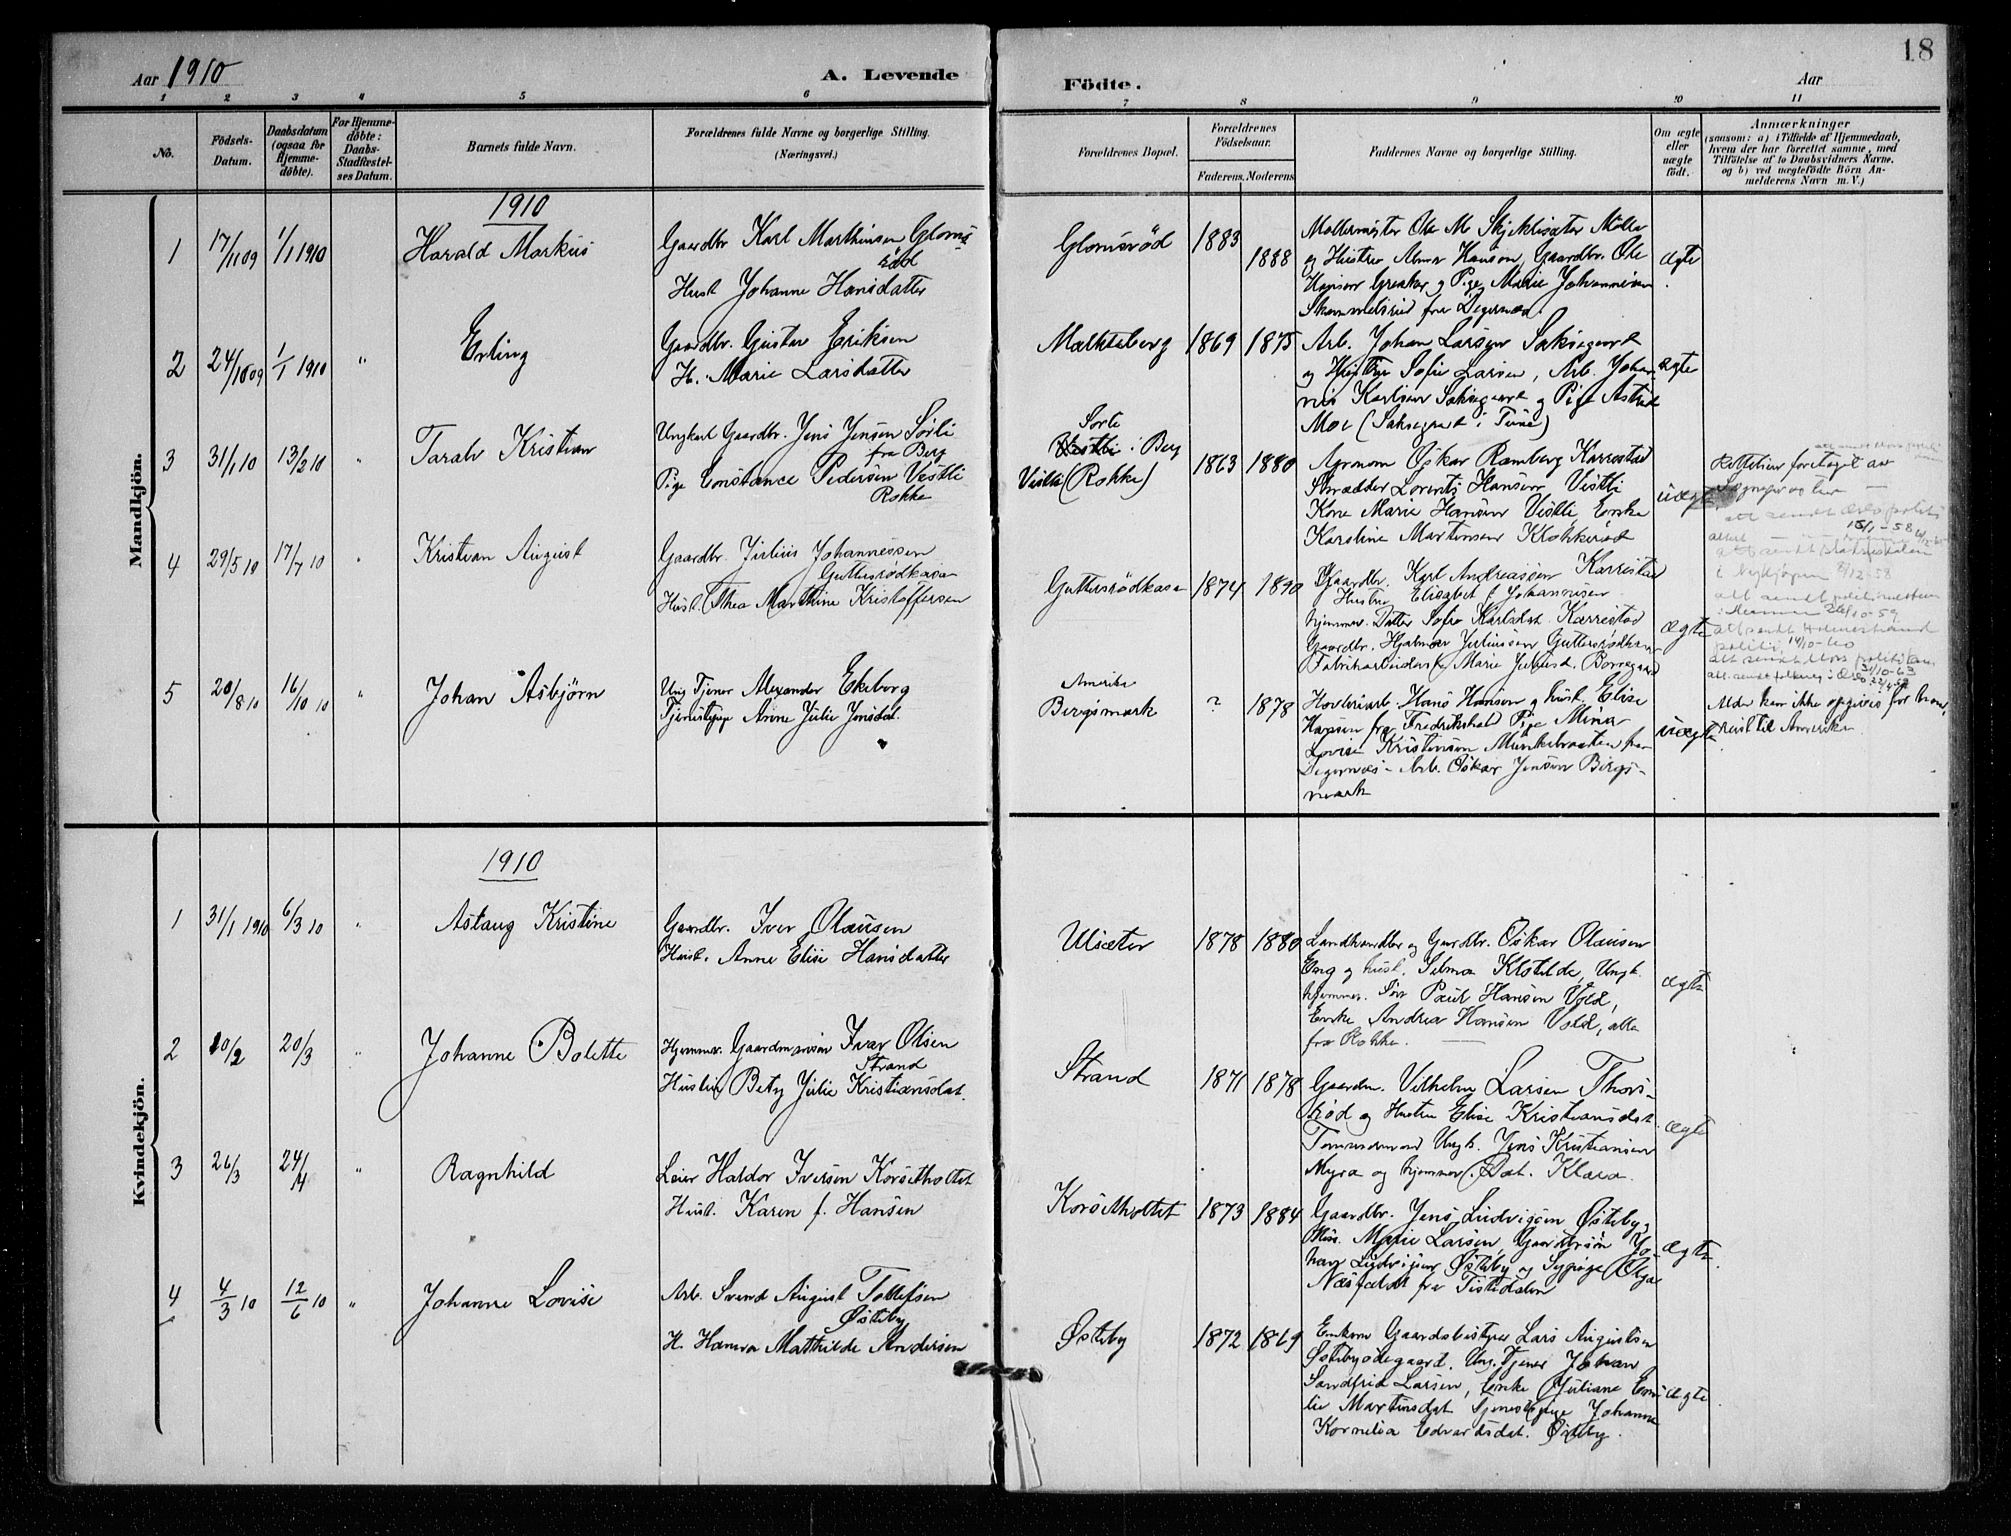 Aar 1910
A. Levende
Födte.
Aar
18
1 2 3 4 5 6 7 8 9 10 11
No.
Födsels-
Datum.
Daabsdatum
(ogsaa for
Hjemme-
döbte).
For Hjemme-
döbte:
Daabs-
Stadfæstel-
ses Datum.
Barnets fulde Navn.
Forældrenes fulde Navne og borgerlige Stilling.
(Næringsvei.)
Forældrenes Bopæl.
Forældrenes
Födselsaar.
Faderens. Moderens.
Faddernes Navne og borgerlige Stilling.
Om ægte
eller
uægte
födt.
Anmærkninger
(saasom: a) i Tilfælde af Hjemmedaab,
hvem der har forrettet samme, med
Tilföielse af to Daabsvidners Navne.
og b) ved uægtefödte Börn An-
melderens Navn m. V.)
Mandkjön.
1910
1 17/11 09 1/1 1910 Harald Markus
Gaardbr. Karl Marthinsen Gloms-
röd
Hust. Johanne Hansdatter
Glomsröd 1883 1888
Möllermester Ole M Skjeklesæter Mölle
og Hustru Hanson, Gaardbr. Ole
Hanson og Pige Marie Johannesen
fra Degernæs.
ægte
2 24/10 09 1/1 1910 " Erling
Gaardbr. Gustav Eriksen
H. Marie Larsdatter
1869 1875
Arb. Johan Larsen Saksegaard
og Hustru Sofie Larsen, Arb. Johan-
nes Karlsen Saksegaard og Pige Astrid
Moe (Saksegaard i Tune)
ægte
3 31/1 10 13/2 10 " Taralv Kristian
Ungkarl Gaardbr. Jens Jensen Sörli
fra Berg
Pige Constance Pedersen Vestli
Rokke
Sörli
Vestli i Berg
Vestli (Rokke)
1863 1880
Agronom Oskar Ramberg Karrestad
Skrædder Lorents Hansen Vestli
Kone Marie Hansen Vestli Enke
Karoline Martinsen Krokkeröd
uægte
Rettelsen foretaget av
Sogneprest
att sendt Oslo politi
15/1-58
att sendt
i Nykjöping 2/12-58
att sendt
26/10-59
att sendt Holmestrand
politi 14/10-60
att sendt Moss politikam.
31/10-63
4 29/5 10 17/7 10 " Kristian August
Gaardbr. Julius Johannessen
Guttersrödkasa
Hust. Thea Marthine Kristoffersen
Guttersrödkasa 1874 1890
Gaardbr. Karl Andreassen Karrestad
Hustru Elisabet f. Johannesen
hjemmev. Datter Sofie Karlsdat. Karrestad
Gaardbr. Hjalmar Juliussen Guttersrödkasa
Fabrikarbeiderske Marie Juliusd. Borregaard
ægte
5 20/8 10 16/10 10 " Johan Asbjörn
Ung Tjener Alexander Ekeberg
Tjenestepige Anne Julie Jensdat.
Amerika
Bergsmark ? 1878
Hövleriarb. Hans Hansen og Hust. Elise
Hansen fra Fredrikshald Pige Mina
Lovise Kristensen Munkebraaten fra
Degernæs – Arb. Oskar Jensen Bergs-
mark
uægte
Alder kan ikke opgives for ham,
reist til Amerika.
Kvindekjön.
1910
1 31/1 1910 6/3 10 " Aslaug Kristine
Gaardbr. Iver Olausen
Hust. Anne Elise Hansdatter
Ulsæter 1878 1880
Landhandler og Gardbr. Oskar Olausen
Eng og Hust. Selma Klotilde, Ungk.
hjemmev. Sön Paul Hansen Vold,
Enke Andrea Hansen Vold, alle
fra Rokke.
ægte
2 10/2 20/3 " Johanne Bolette
Hjemmev. Gaardmandssön Ivar Olsen
Strand
Hustru Betzy Julie Kristiansdat.
Strand 1871 1878
Gaardm. Vilhelm Larsen Thors-
röd og Hustru Elise Kristiansdat.
Tommesdammen Ungk. Jens Kristiansen
Myra og hjemmev. Dat. Klara.
ægte
3 26/3 24/4 " Ragnhild
Leier Haldor Iversen Korsetholtet
Hust. Karen f. Hansen
Korsetholtet 1873 1884
Gaardbr. Jens Ludvigsen Østeby,
Hus. Marie Larsen, Gaardbrsön Jo-
han Ludvigsen Østeby og Sypige Olga
Næsfeldt fra Tistedalen
ægte.
4 4/3 10 12/6 10 " Johanne Lovise
Arb. Svend August Tollefsen
Østeby
H. Hanna Mathilde Andersen
Østeby 1872 1869
Enkem. Gaardsbestyrer Lars Augustsen
Østebyödegaard. Ung. Tjener Johan
Sandfrid Larsen, Enke Juliane Emi-
lie Martinsdat. Tjenestepige Johanne
Kornelia Edvardsdat. Østeby.
ægte